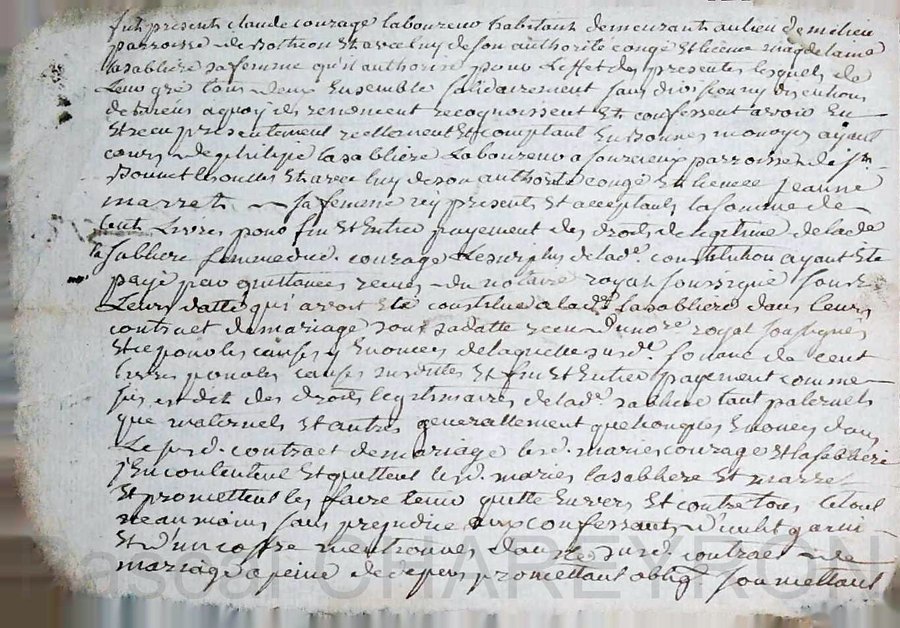 fut present claude courage laboureur habitant demeurant au lieu de milieu
parroisse de Boetheon et avec luy de son authorité congé et licence magdelaine
lasabliere sa femme qu'il authorise pour l'effet des presentes lesquels de
leur gré tous deux ensemble solidairement sans division ny discution
de biens a quoy ils renoncent recognoissent et confessent avoir eu
et receu presentement reellement et comptant en bonnes monoyes ayant
cours de philipe lasabliere laboureur a fourcieux parroisse de st
Bonnet les oulles et avec luy de son authorité congé et licence jeanne
marret sa femme icy presents et acceptants la somme de
cent livres pour fin et entier payement des droits de legitime de lade
sabliere femme dud. courage le surplus de lad. constitution ayant esté
payé par quittances receues du notaire royal soussigné sous
leurs datte qui avoit esté constitué a lad. lasabliere dans leurs
contract de mariage sous sa datte receu dud no.re royal soussigné
et ce pour les causes y enoncées de laquelle susd. somme de cent
livres pour les causes susdittes et fin et entier payement comme
sus est dit des droits legitimaires de lad. sabliere tant paternels
que maternels et autres generallement quelconques enoncés dans
le susd. contract de mariage lesd. mariés courage et lasabliere
s'en contentent et quittent lesd. mariés lasabliere et marret
et promettent les faire tenir quitte envers et contre tous le tout
neanmoins sans prejudice aux confessants d'un lit garni
et d'un coffre mentionnés dans le susd. contract de
mariage a peine de depens promettant oblig. soumettant
Pascal CHAREYRON